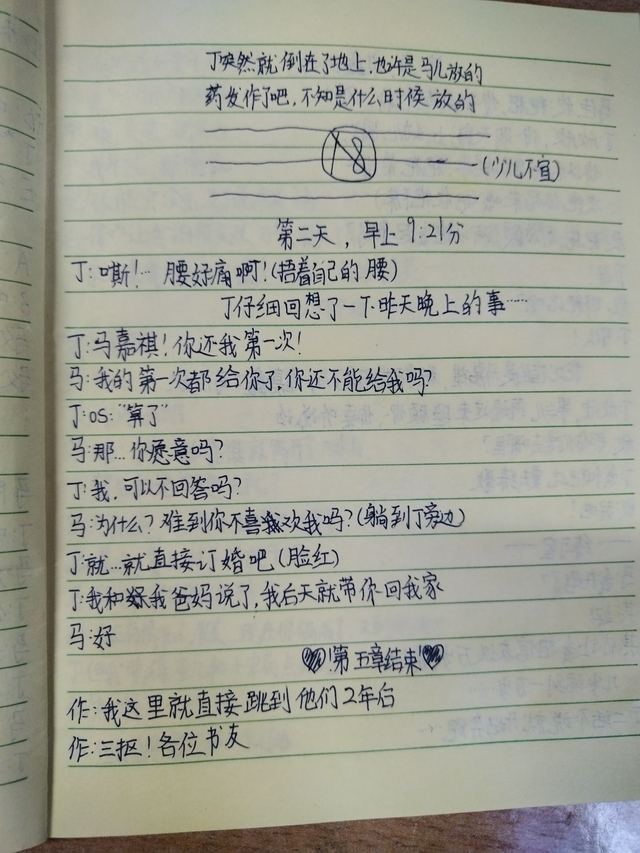 丁突然就倒在了地上，也许是马儿放的
药发作了吧，不知是什么时候放的
18
(少儿不宜)
第二天，早上9:21分
丁:嘶!… 腰好痛啊!(捂着自己的腰)
丁仔细回想了一下昨天晚上的事……
丁:马嘉祺!你还我第一次!
马:我的第一次都给你了,你还不能给我吗?
丁:OS:"算了"
马:那…你愿意吗?
丁:我,可以不回答吗?
马:为什么?难到你不喜欢我吗?(躺到丁旁边)
丁:就…就直接订婚吧(脸红)
丁:我和我爸妈说了,我后天就带你回我家
马:好
♡!第五章结束!♡
作:我这里就直接跳到他们2年后
作:三抠!各位书友